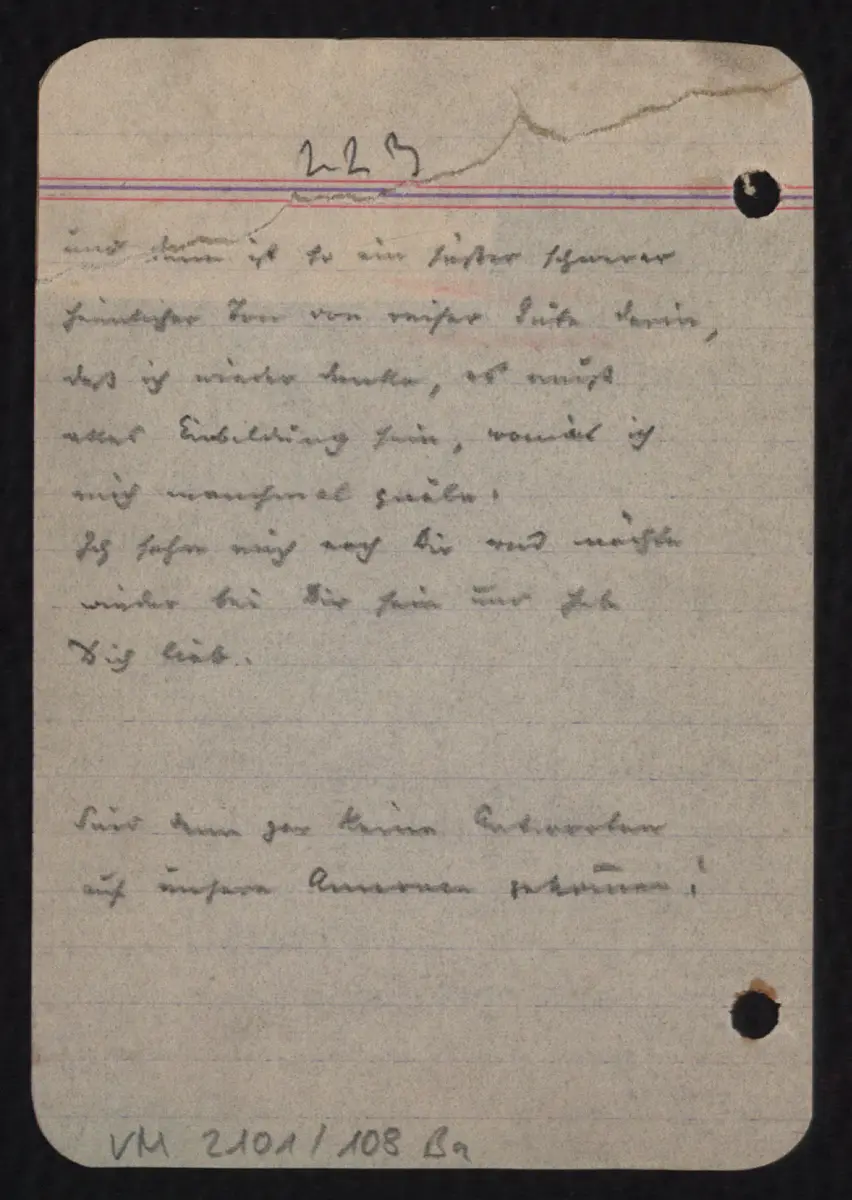 223
und dann ist so ein süßer schwerer
heimlicher Ton von reifer Güte darin,
daß ich wieder denke, es muß
alles Einbildung sein, womit ich
mich manchmal quäle.
Ich sehne mich nach Dir und möchte
wieder bei Dir sein und habe
Dich lieb.
Sind denn gar keine Antworten
auf unsere Annoncen gekom̄en?
VM 2101/108 Ba